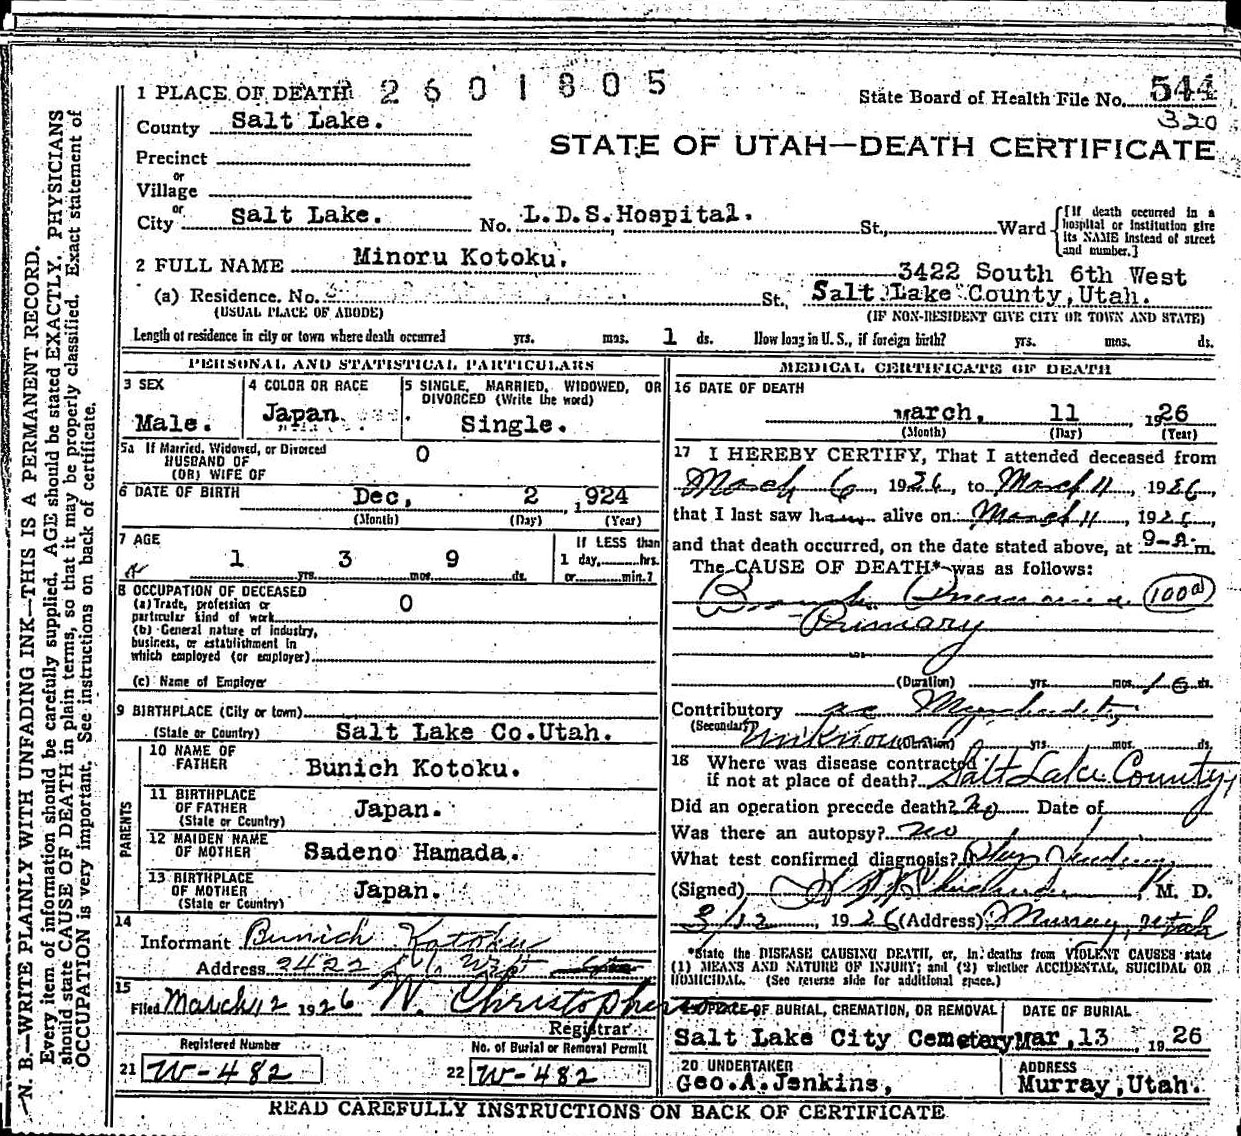 1 PLACE OF DEATH 2601805
State Board of Health File No. 544
320
County Salt Lake.
STATE OF UTAH—DEATH CERTIFICATE
Precinct
or
Village
or
City Salt Lake. No. L.D.S.Hospital. St., Ward
[If death occurred in a hospital or institution give its NAME instead of street and number.]
2 FULL NAME Minoru Kotoku.
(a) Residence. No. St., 3422 South 6th West
Salt Lake County,Utah.
(USUAL PLACE OF ABODE) (IF NON-RESIDENT GIVE CITY OR TOWN AND STATE)
Length of residence in city or town where death occurred yrs. mos. 1 ds. How long in U. S., if foreign birth? yrs. mos. ds.
PERSONAL AND STATISTICAL PARTICULARS
3 SEX
Male.
4 COLOR OR RACE
Japan
5 SINGLE, MARRIED, WIDOWED, OR DIVORCED (Write the word)
Single.
5a If Married, Widowed, or Divorced
HUSBAND OF
(OR) WIFE OF
0
6 DATE OF BIRTH Dec, 2 1924
(Month) (Day) (Year)
7 AGE
1 yrs. 3 mos. 9 ds.
If LESS than
1 day, hrs.
or min.?
8 OCCUPATION OF DECEASED
(a) Trade, profession or
particular kind of work 0
(b) General nature of industry,
business, or establishment in
which employed (or employer)
(c) Name of Employer
9 BIRTHPLACE (City or town)
(State or Country) Salt Lake Co.Utah.
PARENTS
10 NAME OF
FATHER Bunich Kotoku.
11 BIRTHPLACE
OF FATHER
(State or Country) Japan.
12 MAIDEN NAME
OF MOTHER Sadeno Hamada.
13 BIRTHPLACE
OF MOTHER
(State or Country) Japan.
14
Informant Bunich Kotoku
Address 3422
15
Filed March 12 1926 W. Christopherson
Registrar
Registered Number
21 W-482
No. of Burial or Removal Permit
22 W-482
MEDICAL CERTIFICATE OF DEATH
16 DATE OF DEATH
March, 11 1926
(Month) (Day) (Year)
17 I HEREBY CERTIFY, That I attended deceased from
March 6, 1926, to March 11, 1926,
that I last saw him alive on March 11, 1926,
and that death occurred, on the date stated above, at 9-A. m.
The CAUSE OF DEATH* was as follows:
Broncho Pneumonia 100a
Primary
(Duration) yrs. mos. 10 ds.
Contributory
(Secondary) Unknown (Duration) yrs. mos. ds.
18 Where was disease contracted
if not at place of death? Salt Lake County
Did an operation precede death? No Date of
Was there an autopsy? no
What test confirmed diagnosis?
(Signed) M. D.
3/12, 1926 (Address) Murray, Utah
*State the DISEASE CAUSING DEATH, or, in deaths from VIOLENT CAUSES state
(1) MEANS AND NATURE OF INJURY; and (2) whether ACCIDENTAL, SUICIDAL OR
HOMICIDAL. (See reverse side for additional space.)
19 PLACE OF BURIAL, CREMATION, OR REMOVAL
Salt Lake City Cemetery
DATE OF BURIAL
Mar, 13, 1926
20 UNDERTAKER
Geo.A.Jenkins,
ADDRESS
Murray,Utah.
READ CAREFULLY INSTRUCTIONS ON BACK OF CERTIFICATE
N. B.—WRITE PLAINLY WITH UNFADING INK—THIS IS A PERMANENT RECORD.
Every item of information should be carefully supplied. AGE should be stated EXACTLY. PHYSICIANS
should state CAUSE OF DEATH in plain terms, so that it may be properly classified. Exact statement of
OCCUPATION is very important. See instructions on back of certificate.